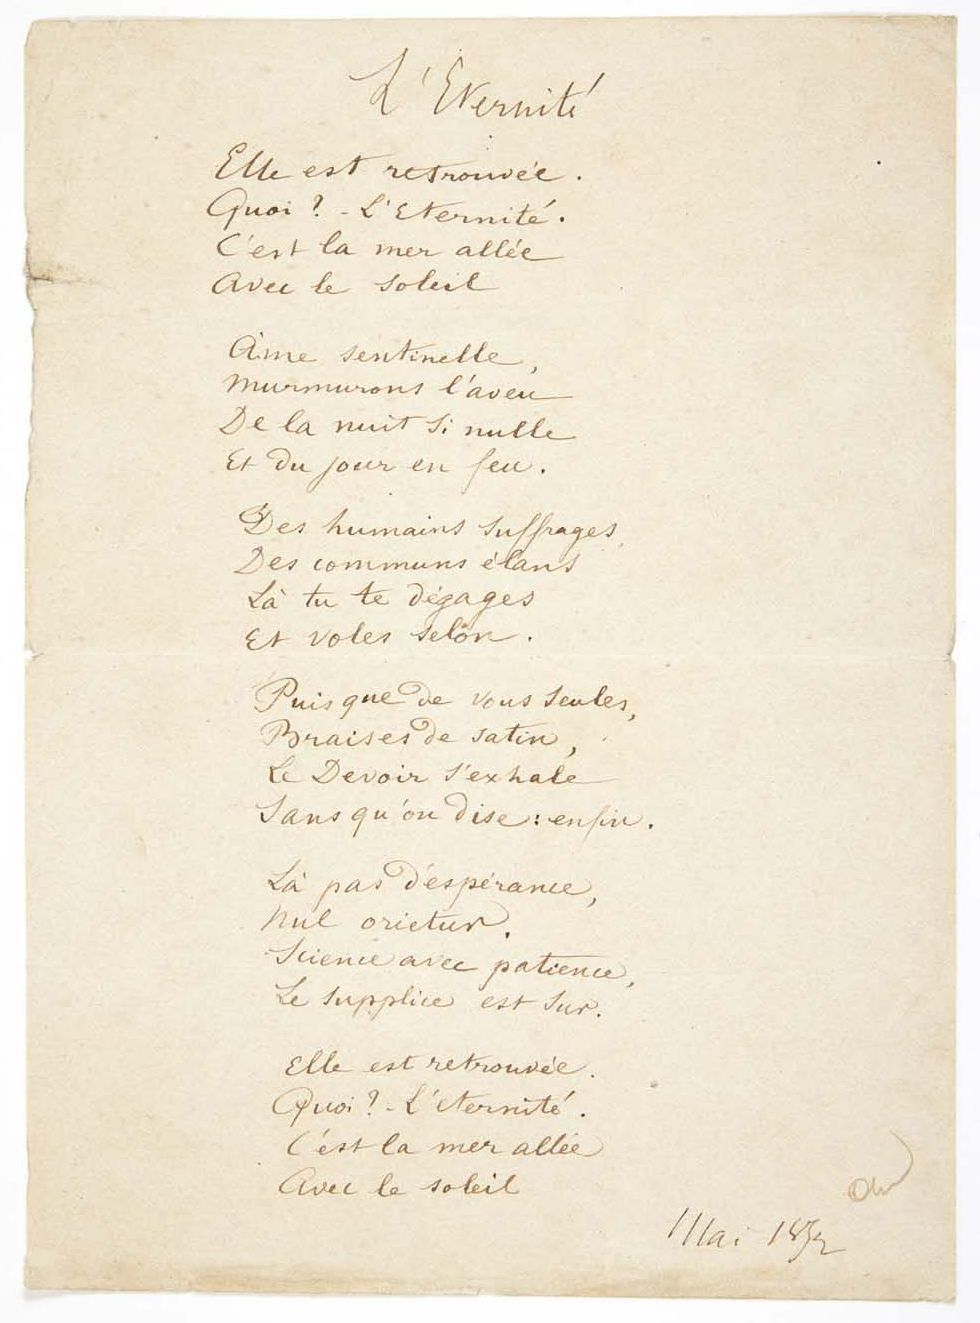 L'Eternité
Elle est retrouvée.
Quoi? - L'Eternité.
C'est la mer allée
Avec le soleil
Ame sentinelle,
Murmurons l'aveu
De la nuit si nulle
Et du jour en feu.
Des humains suffrages,
Des communs élans
Là tu te dégages
Et voles selon.
Puisque de vous seules,
Braises de satin,
Le Devoir s'exhale
Sans qu'on dise : enfin.
Là pas d'espérance,
Nul orietur.
Science avec patience,
Le supplice est sur.
Elle est retrouvée.
Quoi? - L'éternité.
C'est la mer allée
Avec le soleil
Mai 1872